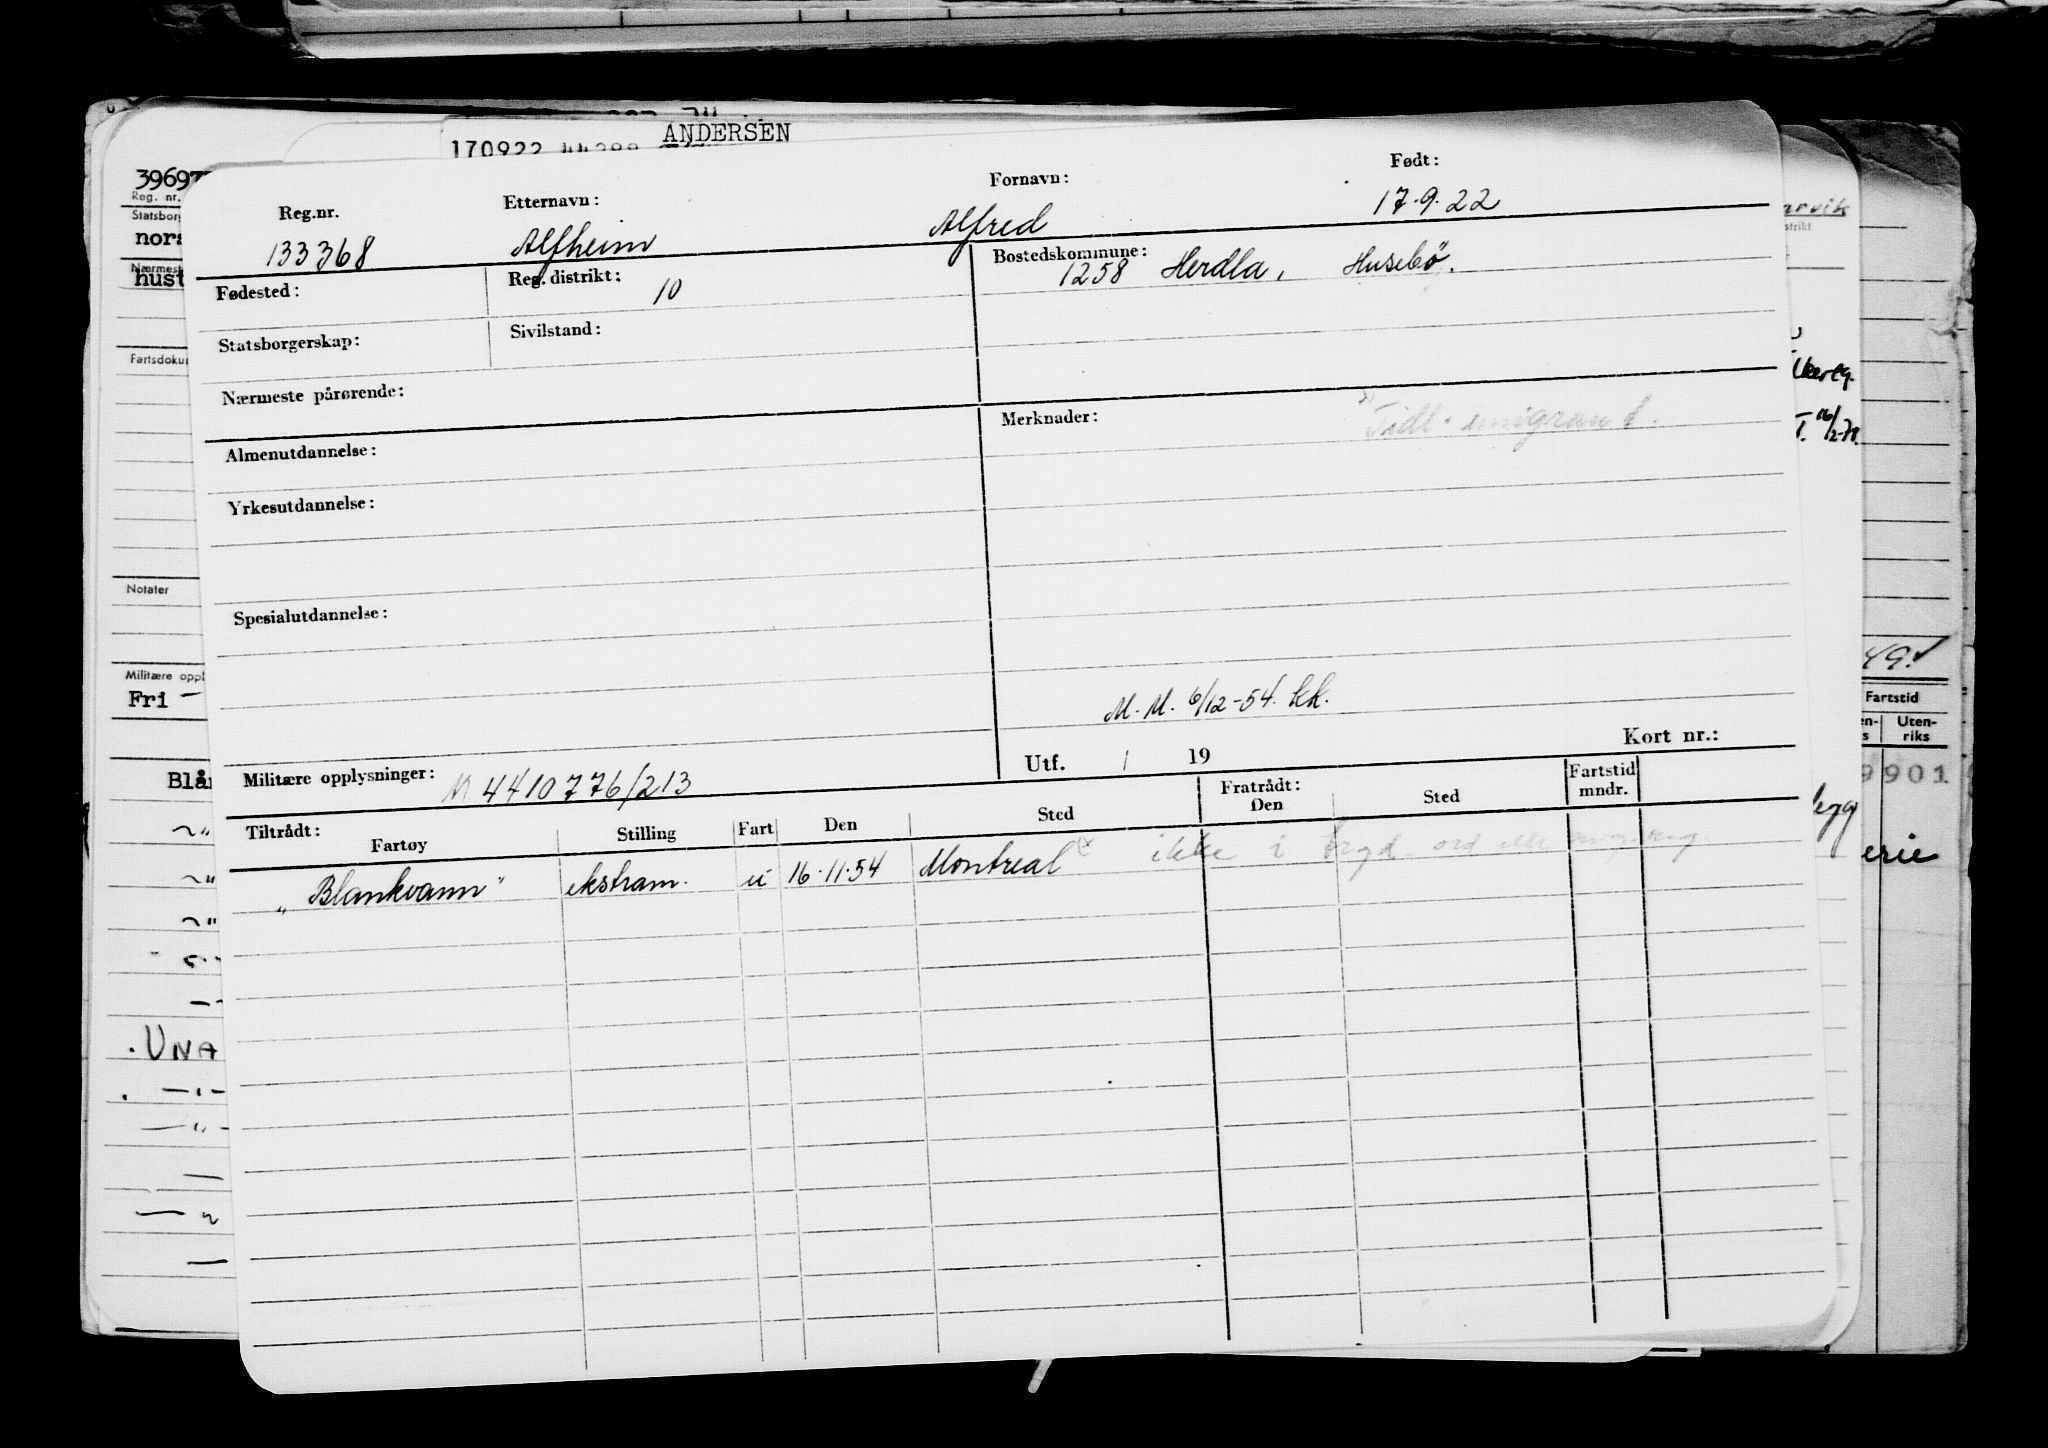 ANDERSEN
170922
39697
Reg. nr.
Statsborg
nors
Nærmest
hust
Fartsdoku
Notater
Militære oppl
Fri -
Blå
UNA
Reg.nr. Etternavn: Fornavn: Født:
133368 Alfheim Alfred 17.9.22
Fødested: Reg. distrikt: 10 Bostedskommune: 1258 Herdla, Husebö.
Statsborgerskap: Sivilstand:
Nærmeste pårørende:
Merknader: Tidl. emigrant.
Almenutdannelse:
Yrkesutdannelse:
Spesialutdannelse:
M.M. 6/12-54. kk.
Utf. / 19 Kort nr.:
Militære opplysninger: M 4410776/213
Tiltrådt: Fratrådt:
Fartøy Stilling Fart Den Sted Den Sted Fartstid mndr.
"Blankvann" ekstram. u 16.11.54 Montreal ikke i trygd
arvik
strikt
49.
Fartstid
Uten-
riks
901
legg
erie